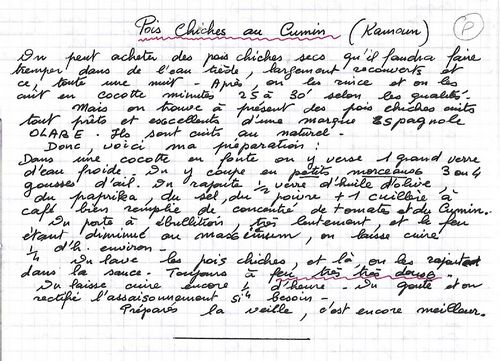 Pois Chiches au Cumin (Kamoun) P
On peut acheter des pois chiches secs qu'il faudra faire
tremper dans de l'eau tiède, largement recouverts et
ce, toute une nuit. Après on les rince et on les
cuit en cocotte minutes 25 à 30' selon les qualités.
Mais on trouve à présent des pois chiches cuits
tout prêts et excellents d'une marque Espagnole
OLABE. Ils sont cuits au naturel.
Donc, voici ma préparation :
Dans une cocotte en fonte on y verse 1 grand verre
d'eau froide. On y coupe en petits morceaux 3 ou 4
gousses d'ail. On rajoute 1/2 verre d'huile d'olive,
du paprika, du sel, du poivre + 1 cuillère à
café bien remplie de concentré de tomates et du Cumin.
On porte à ébullition très lentement, et le feu
étant diminué au massimum, on laisse cuire
1/4 d'h. environ.
On lave les pois chiches, et là, on les rajoute
dans la sauce. Toujours à feu très très doux.
On laisse cuire encore 1/2 d'heure. On goute et on
rectifie l'assaisonnement si besoin.
Préparés la veille, c'est encore meilleur.